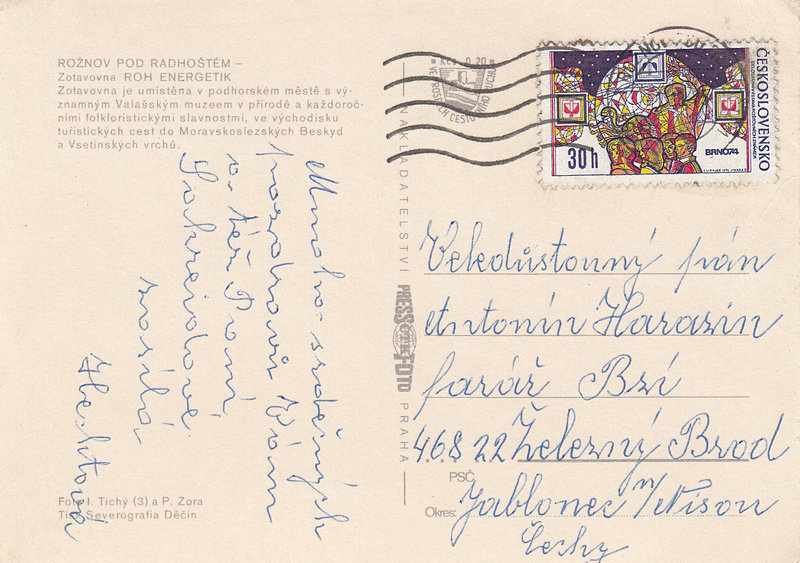 ROŽNOV POD RADHOŠTĚM –
Zotavovna ROH ENERGETIK
Zotavovna je umístěna v podhorském městě s vý-
znamným Valašským muzeem v přírodě a každoroč-
ními folkloristickými slavnostmi, ve východisku
turistických cest do Moravskoslezských Beskyd
a Vsetínských vrchů.
Mnoho srdečných
pozdravů Vám
a též Paní
zasílá
Foto I. Tichý (3) a P. Zora
Tisk Severografia Děčín
NAKLADATELSTVÍ PRESSFOTO PRAHA
Kčs 0,20
ČESKOSLOVENSKO
BRNO74
30 h
Veledůstonný pán
Antonín Harazin
farář Bzí
468 22 Železný Brod
PSČ
Okres: Jablonec n/Nisou
Čechy